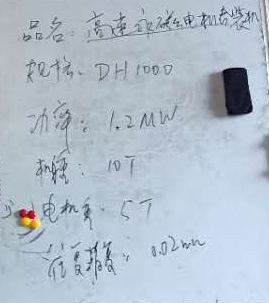 品名：高速永磁电机套装机
规格：DH1000
功率：1.2MW
机重：10T
电机重：5T
重复精度：0.02mm